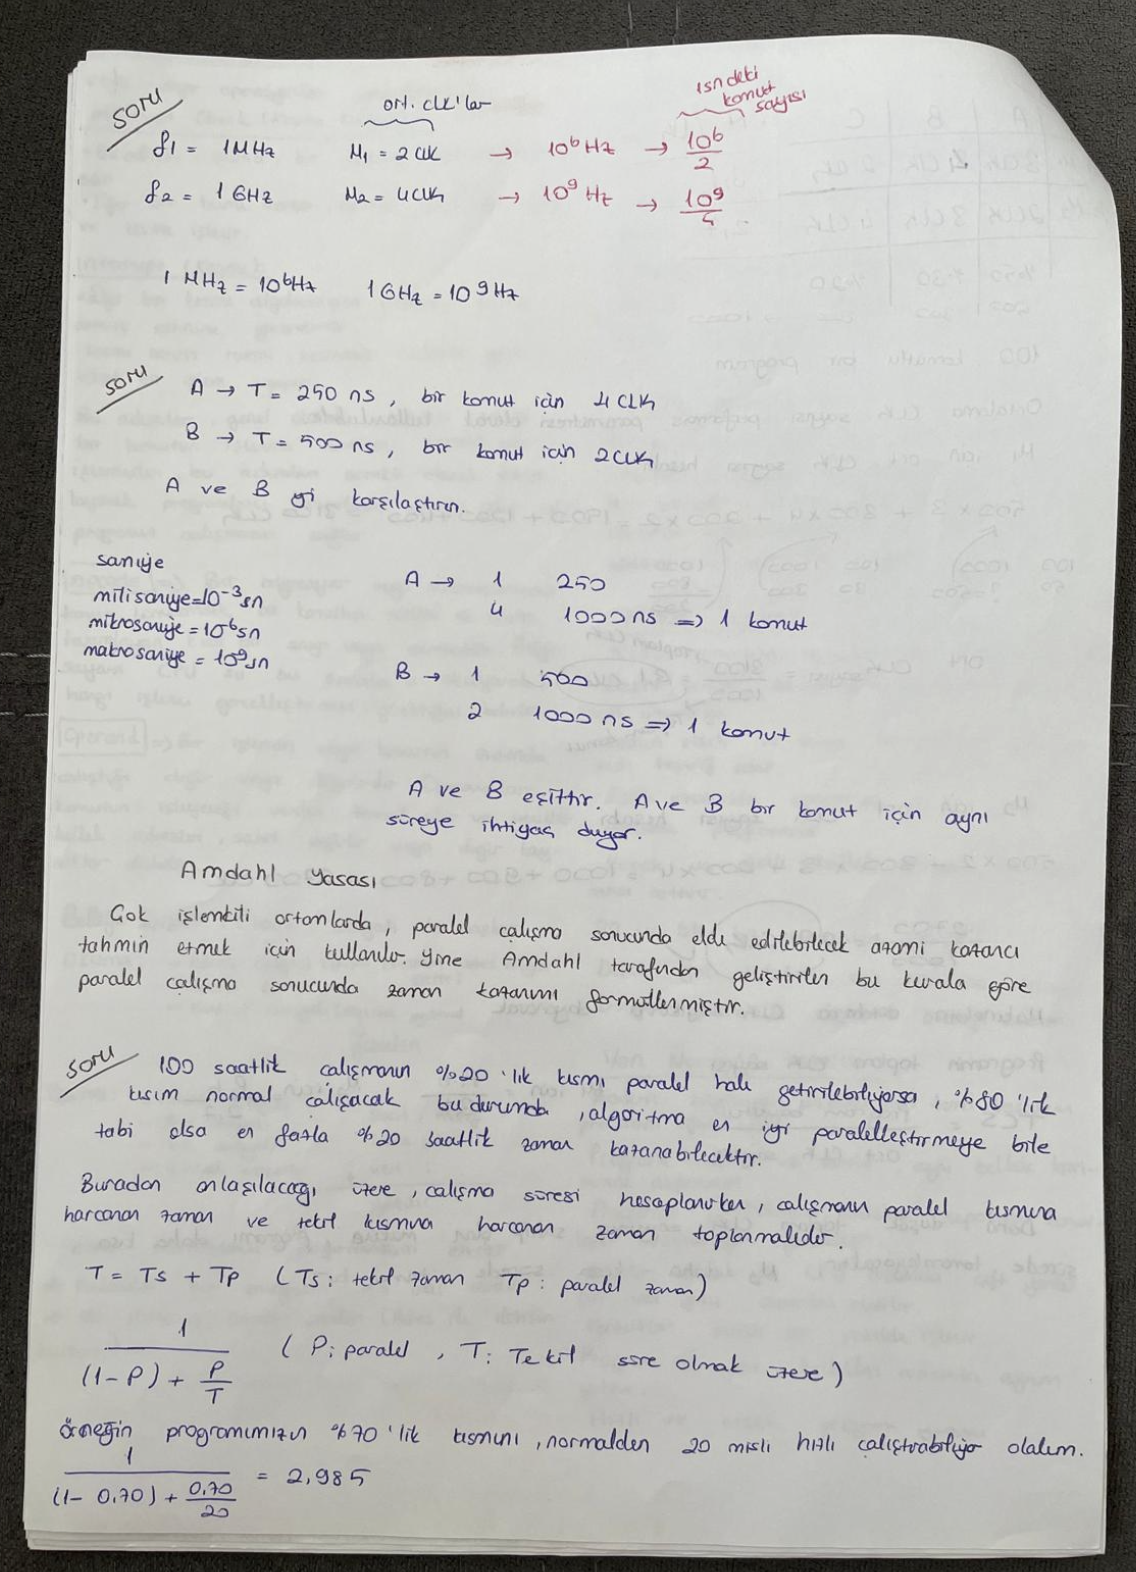 soru
ort. clk'lar
1sn deki
komut
sayısı
f1 = 1MHz M1 = 2 CLK → 10^6 Hz → 10^6/2
f2 = 1 GHz M2 = 4CLK → 10^9 Hz → 10^9/4
1 MHz = 10^6Hz 1 GHz = 10^9 Hz
soru
A → T = 250 ns, bir komut için 4 CLK
B → T = 500 ns, bir komut için 2CLK
A ve B yi karşılaştırın.
saniye
milisaniye=10^-3 sn
mikrosaniye = 10^-6 sn
makrosaniye = 10^9 sn
A → 1 250
4 1000 ns => 1 komut
B → 1 500
2 1000 ns => 1 komut
A ve B eşittir. A ve B bir komut için aynı
süreye ihtiyaç duyar.
Amdahl Yasası
Çok işlemcili ortamlarda, paralel çalışma sonucunda elde edilebilecek azami kazancı
tahmin etmek için kullanılır. Yine Amdahl tarafından geliştirilen bu kurala göre
paralel çalışma sonucunda zaman kazanımı formüllenmiştir.
soru
100 saatlik çalışmanın %20 'lik kısmı paralel hale getirilebiliyorsa, %80 'lik
kısım normal çalışacak bu durumda, algoritma en iyi paralelleştirmeye bile
tabi olsa en fazla %20 saatlik zaman kazanabilecektir.
Buradan anlaşılacağı üzere, çalışma süresi hesaplanırken, çalışmanın paralel kısmına
harcanan zaman ve tekil kısmına harcanan zaman toplanmalıdır.
T = Ts + Tp (Ts: tekil zaman Tp: paralel zaman)
1/((1-P) + P/T) (P: paralel, T: Tekil süre olmak üzere)
Örneğin programımızın %70 'lik kısmını, normalden 20 misli hızlı çalıştırabiliyor olalım.
1/((1- 0.70) + 0.70/20) = 2,985